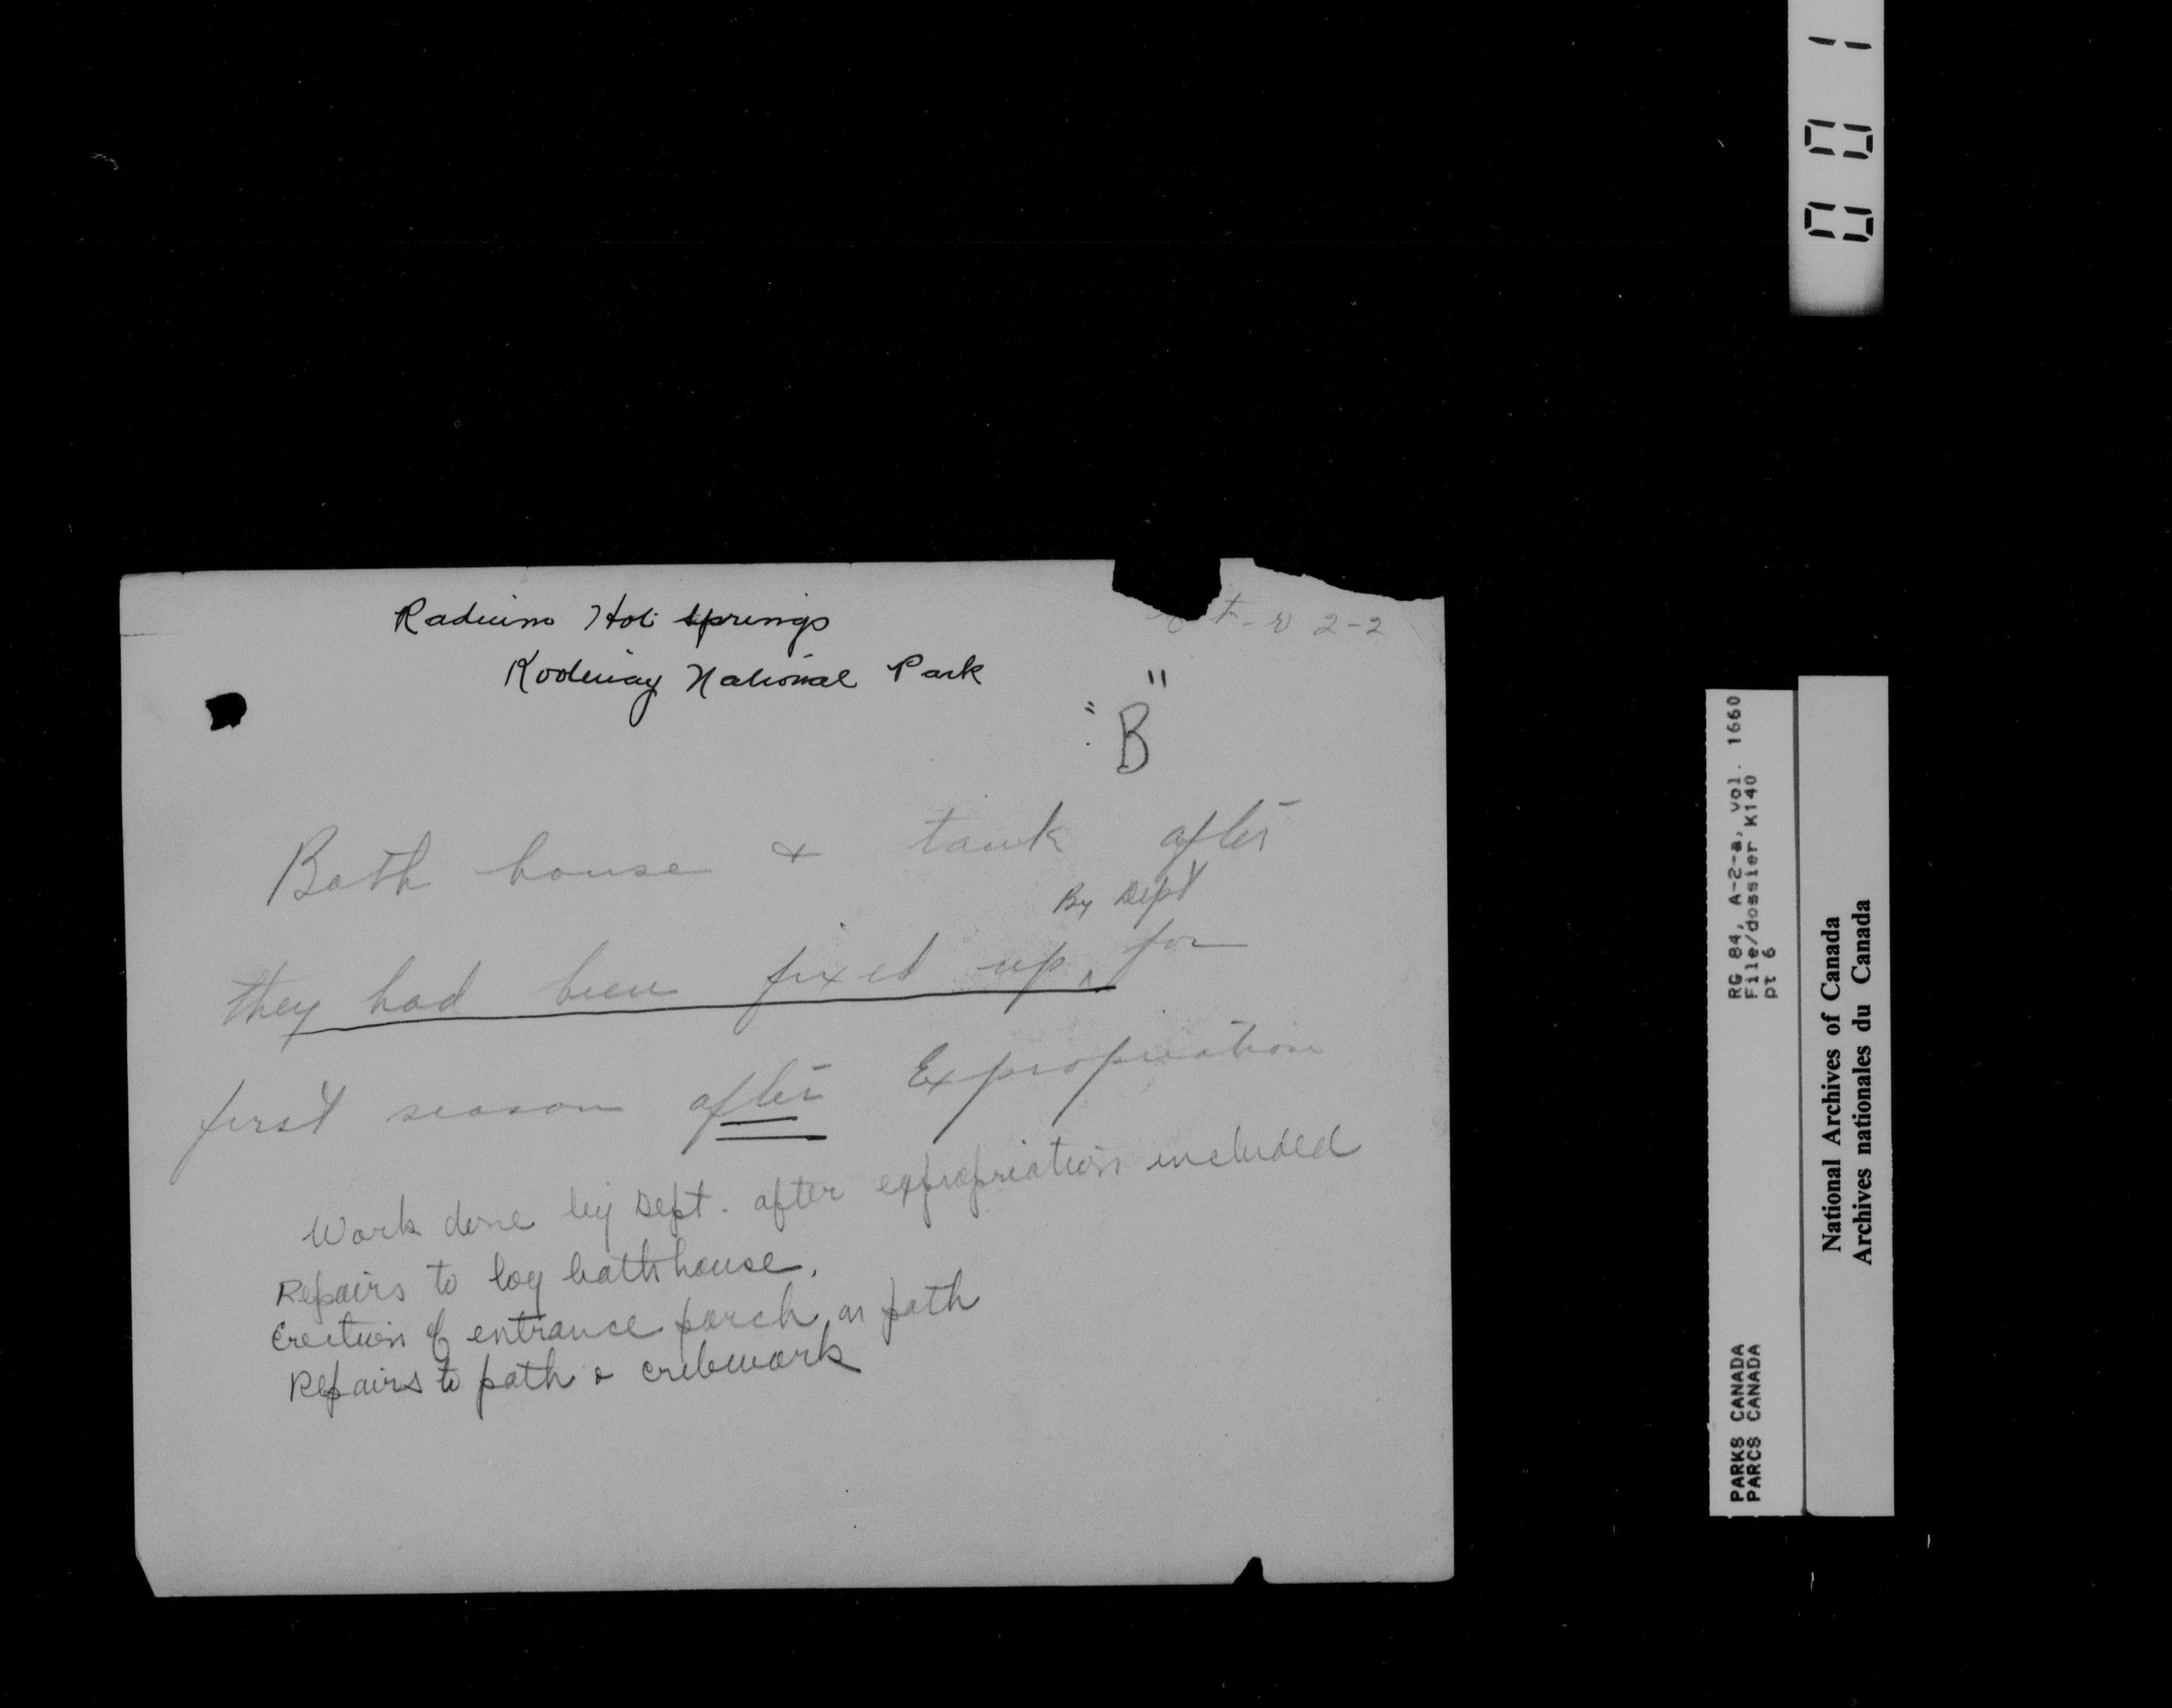 Radium Hot Springs
Kootenay National Park
2-2
"B"
Bath house & tank after
By Dept
they had been fixed up ^ for
first season after Expropriation
Work done by Dept. after expropriation included
Repairs to log bathhouse.
Erection of entrance porch on path
Repairs to path & cribwork
001
RG 84, A-2-a, vol. 1660
File/dossier K140
pt 6
PARKS CANADA
PARCS CANADA
National Archives of Canada
Archives nationales du Canada